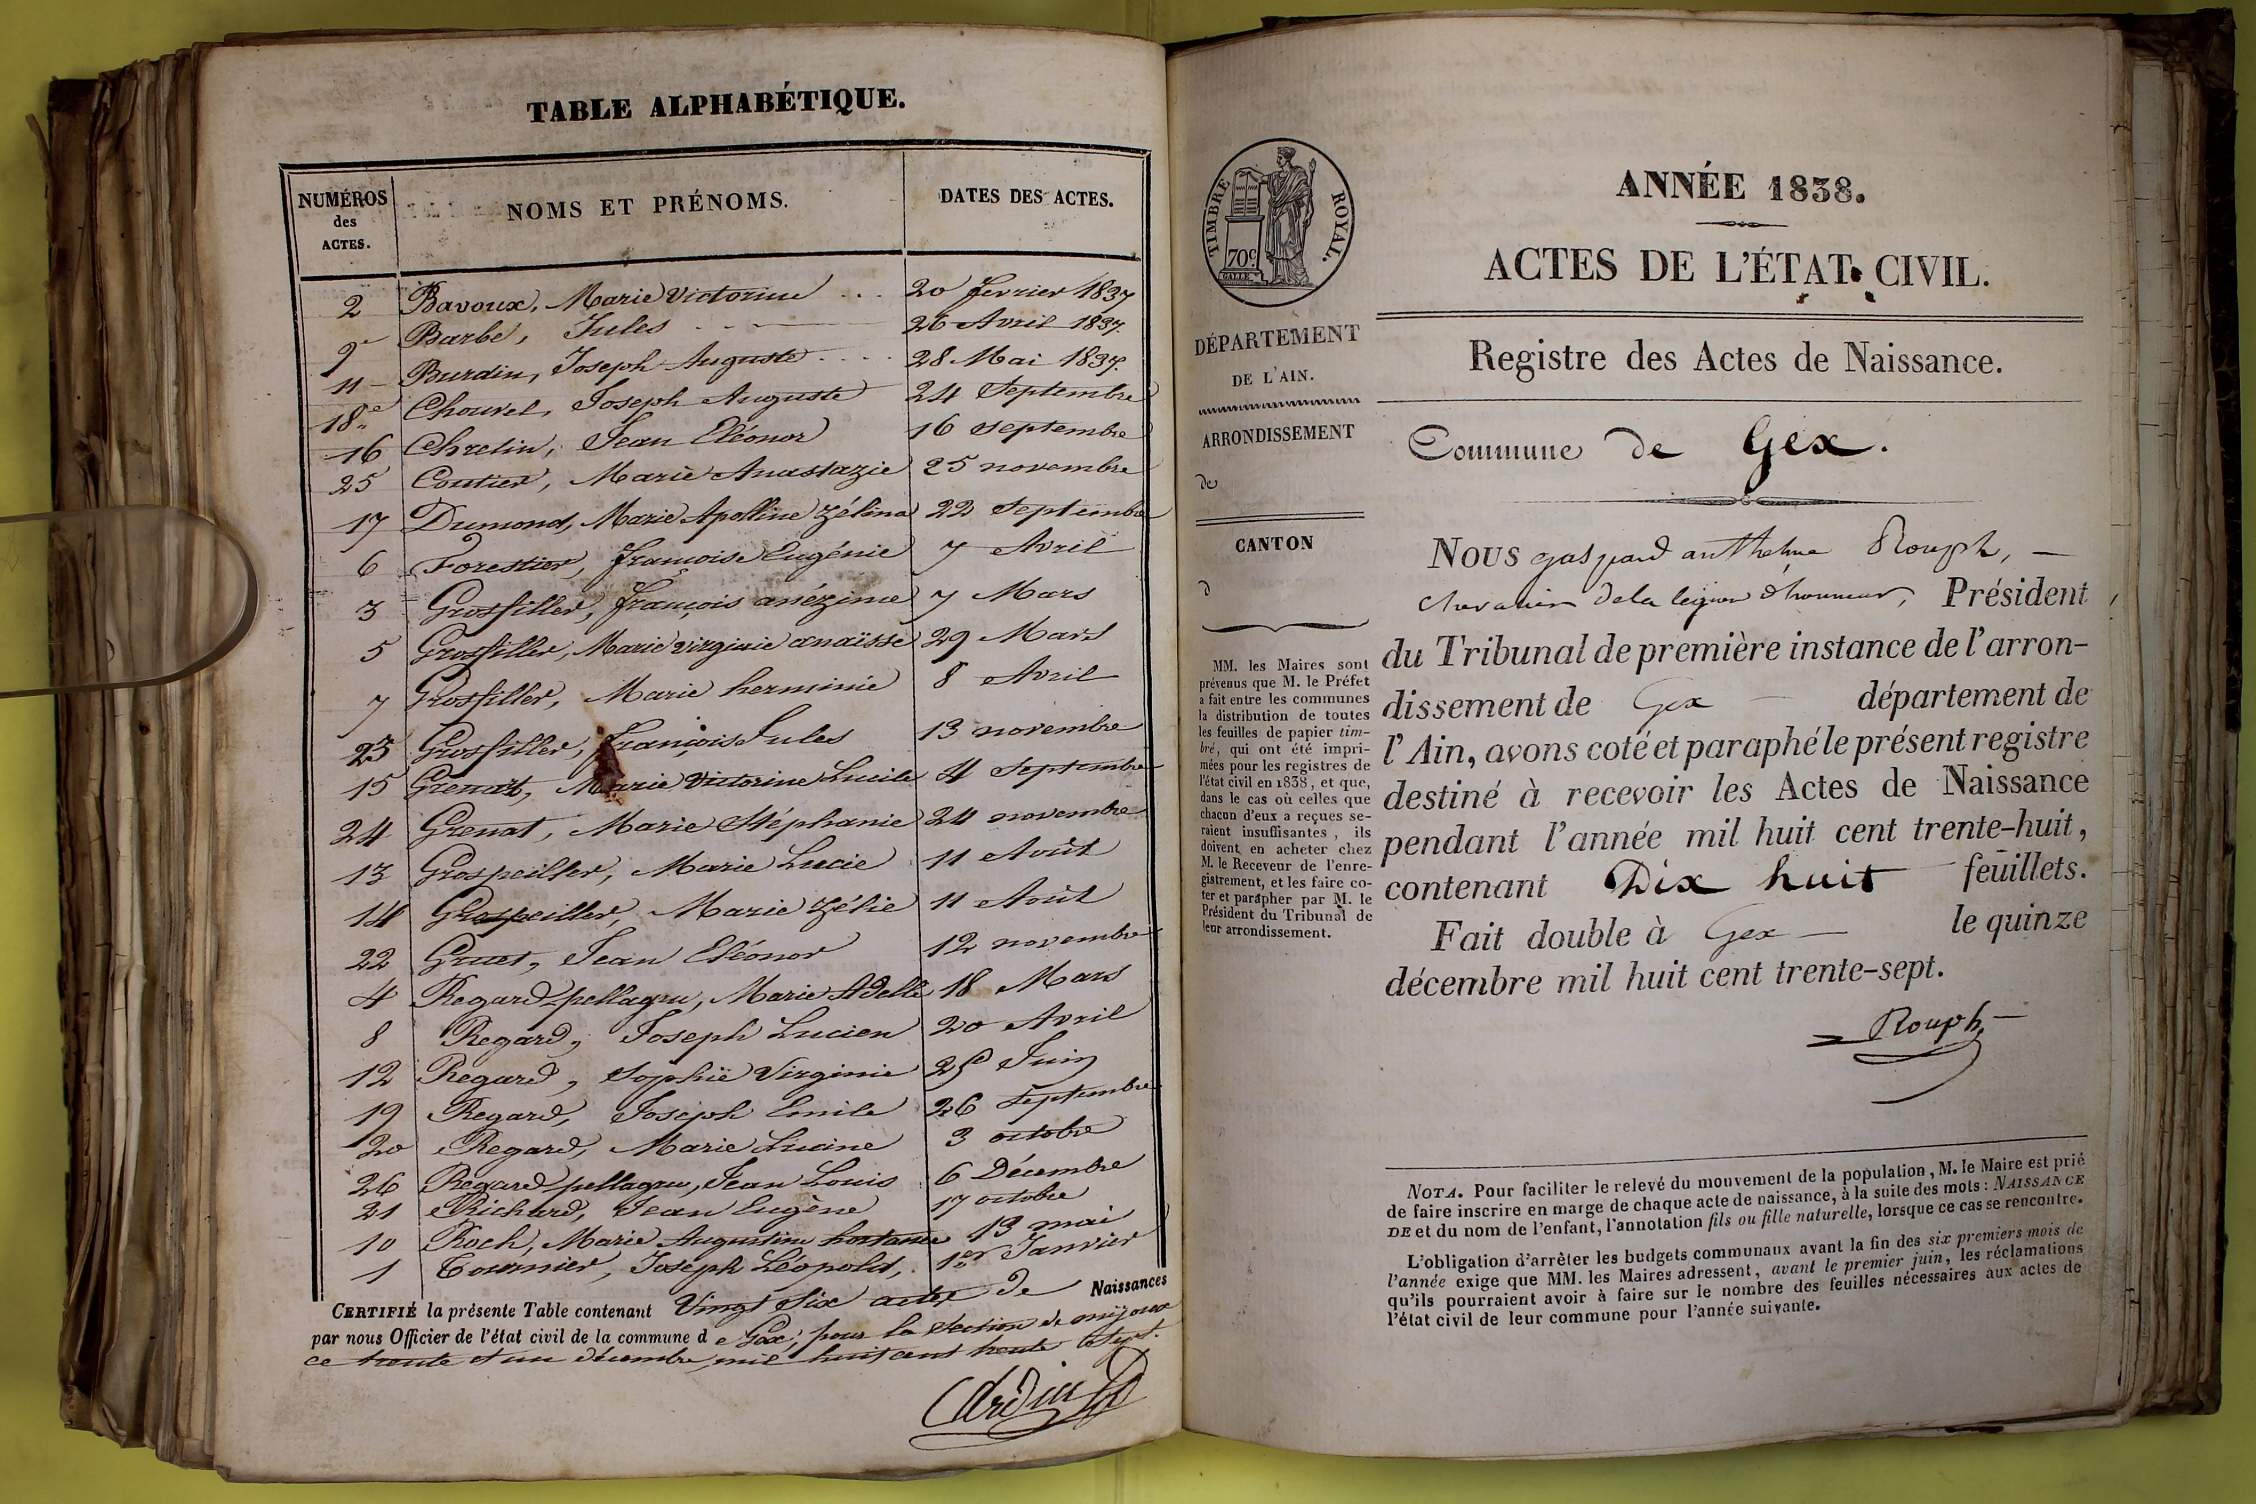 TABLE ALPHABÉTIQUE.
NUMÉROS des ACTES. NOMS ET PRÉNOMS. DATES DES ACTES.
2 Bavoux, Marie Victorine 20 février 1837
9 Barbe, Jules 26 Avril 1837.
11 Burdin, Joseph Auguste 28 Mai 1837.
18 Chouvel, Joseph Auguste 24 Septembre
16 Chretin, Jean Eléonor 16 septembre
25 Coutier, Marie Anastazie 25 novembre
17 Dumond, Marie Apolline Zélina 22 Septembre
6 Forestier, françoise Eugénie 7 Avril
3 Grosfiller, françois anézime 7 Mars
5 Grosfiller, Marie virginie anaïsse 29 Mars
7 Grosfiller, Marie herminie 8 Avril
23 Grosfiller, françois Jules 13 novembre
15 Grenat, Marie Victorine Lucile 4 Septembre
24 Grenat, Marie Stéphanie 24 novembre
13 Grospeiller, Marie Lucie 11 Août
14 Grospeiller, Marie Zélie 11 Août
22 Gruet, Jean Eléonor 12 novembre
4 Regard-pellagru, Marie Adelle 18 Mars
8 Regard, Joseph Lucien 20 Avril
12 Regard, Sophie Virginie 25 Juin
19 Regard, Joseph Emile 26 Septembre
20 Regard, Marie Lucine 3 octobre
26 Regard-pellagru, Jean Louis 6 Décembre
21 Richard, Jean Eugène 17 octobre
10 Roch, Marie Augustine hortance 13 mai
1 Tournier, Joseph Léopold, 1er Janvier
CERTIFIÉ la présente Table contenant Vingt Six actes de Naissances
par nous Officier de l'état civil de la commune de Gex, pour la Section de mijoux
ce trente et un décembre mil huit cent trente Sept.
TIMBRE ROYAL.
70c
DÉPARTEMENT
DE L'AIN.
ARRONDISSEMENT
de
CANTON
d
MM. les Maires sont
prévenus que M. le Préfet
a fait entre les communes
la distribution de toutes
les feuilles de papier tim-
bré, qui ont été impri-
mées pour les registres de
l'état civil en 1838, et que,
dans le cas où celles que
chacun d'eux a reçues se-
raient insuffisantes, ils
doivent en acheter chez
M. le Receveur de l'enre-
gistrement, et les faire co-
ter et parapher par M. le
Président du Tribunal de
leur arrondissement.
ANNÉE 1838.
ACTES DE L'ÉTAT CIVIL.
Registre des Actes de Naissance.
Commune de Gex.
NOUS gaspard anthelme Rouph,
chevalier de la legion d'honneur, Président
du Tribunal de première instance de l'arron-
dissement de Gex département de
l'Ain, avons coté et paraphé le présent registre
destiné à recevoir les Actes de Naissance
pendant l'année mil huit cent trente-huit,
contenant Dix huit feuillets.
Fait double à Gex le quinze
décembre mil huit cent trente-sept.
Rouph
NOTA. Pour faciliter le relevé du mouvement de la population, M. le Maire est prié
de faire inscrire en marge de chaque acte de naissance, à la suite des mots : NAISSANCE
DE et du nom de l'enfant, l'annotation fils ou fille naturelle, lorsque ce cas se rencontre.
L'obligation d'arrêter les budgets communaux avant la fin des six premiers mois de
l'année exige que MM. les Maires adressent, avant le premier juin, les réclamations
qu'ils pourraient avoir à faire sur le nombre des feuilles nécessaires aux actes de
l'état civil de leur commune pour l'année suivante.